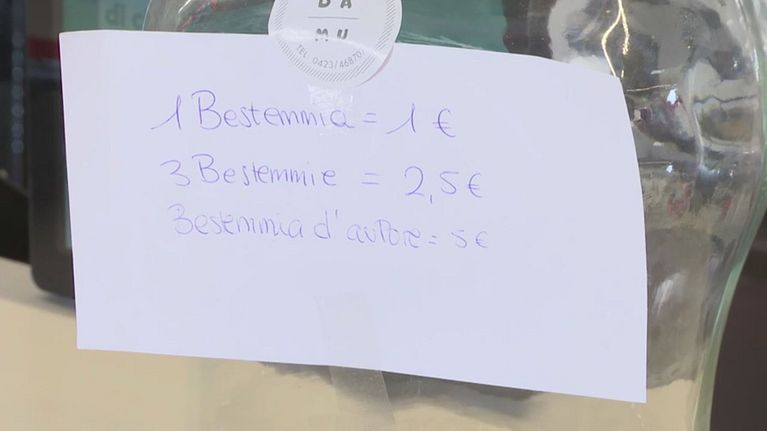 DA
MU
TEL 0423/46870
1 Bestemmia = 1 €
3 Bestemmie = 2,5 €
Bestemmia d'autore = 5 €